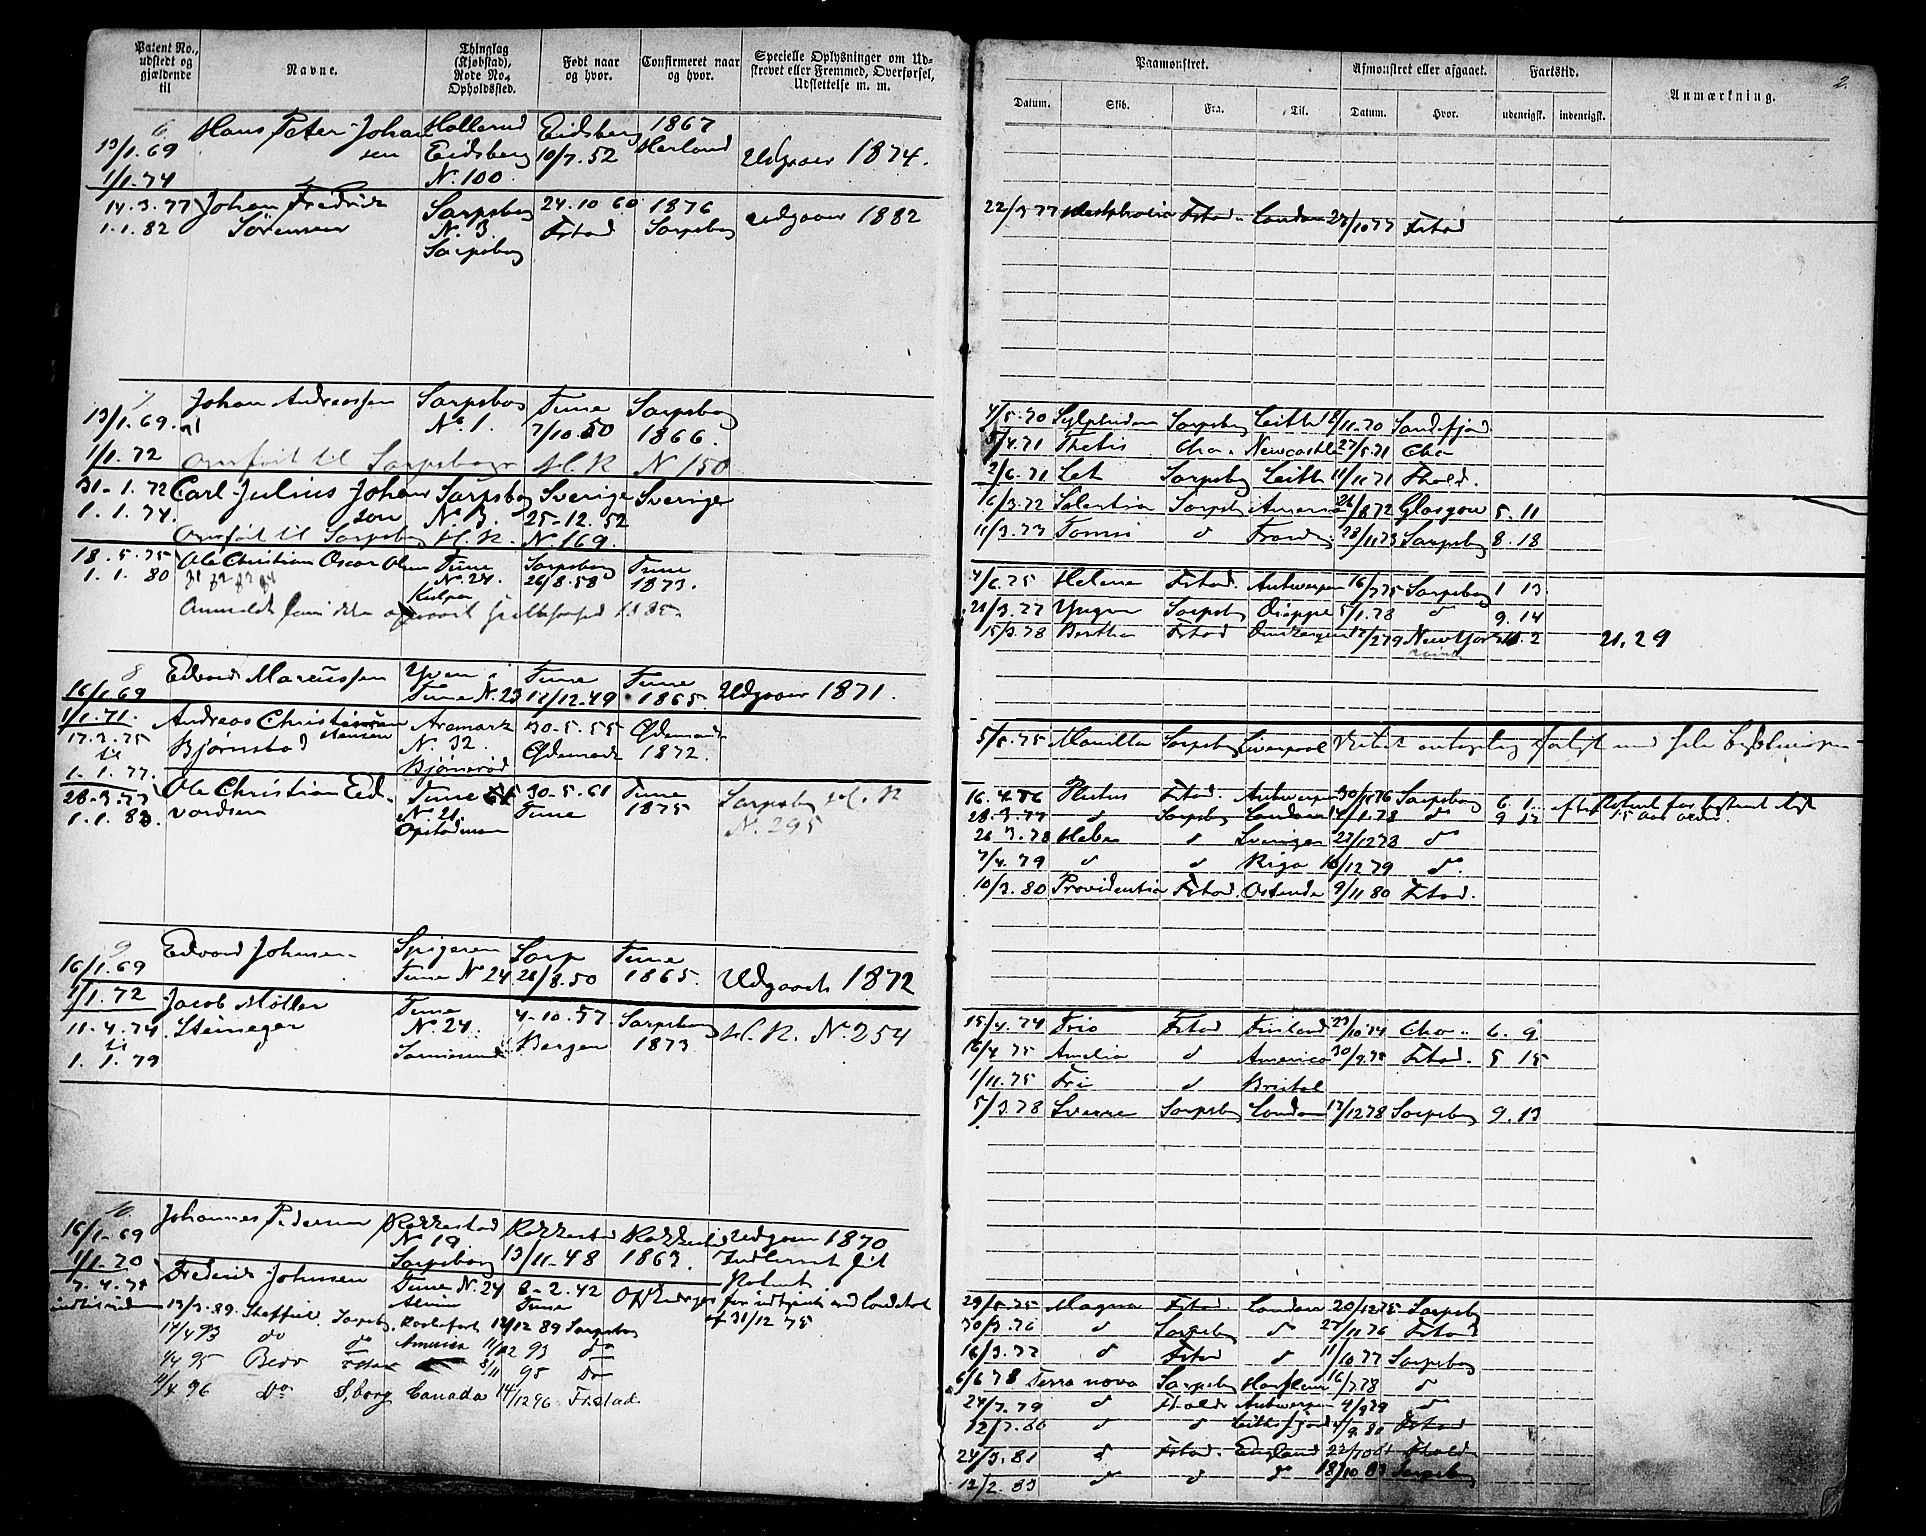 Patent No., udstedt og gjældende til
Navne.
Thinglag (Kjøbstad), Rode No., Opholdssted.
Født naar og hvor.
Confirmeret naar og hvor.
Specielle Oplysninger om Udskrevet eller Fremmed, Overførsel, Udslettelse m. m.
6.
Hans Peter Johan Hollerud Eidsberg 1867
13/1.69 sen Eidsberg 10/7.52 Herland Udgaaer 1874.
1/1.74 N. 100.
14.3.77 Johan Fredrik Sarpsborg 24.10 60 1876 Udgaaer 1882
1.1.82 Sörensen N. 3. Fstad Sarpsborg
Sarpsborg
7
Johan Andreassen Sarpsborg Tune Sarpsborg
13/1.69. N. 1. 7/10 50 1866.
1/1.72 Overført til Sarpsborg H.R. N 150
31-1.72 Carl Julius Johan Sarpsborg Sverige Sverige
1.1.74. sen N. 3. 25-12.52
Overført til Sarpsborg H.R. N. 169.
18.5.75 Ole Christian Oscar Olsen Tune Sarpsborg Tune
1.1.80 N. 24. 26/8.58 1873.
8
Edvard Marcussen Tune Tune
16/1.69 Tune N. 23 12/12.49 1865. Udgaaer 1871.
1/1.71. Andreas Christian Aremark 30.5.55
17.3.75 Bjørnstad Hansen N. 32. 1872.
til Bjørnerød
1.1.77.
28-3.77 Ole Christian Ed- Tune 30-5.61 Tune Sarpsborg H.R.
1.1.83. vardsen N. 21. Tune 1875 N. 295
Opstadmoen
9
Edvard Johnsen Spigeren Sarp Tune
16/1.69 Tune N. 24 28/8.50 1865. Udgaaer 1872
1/1.72 Jacob Møller Tune 4-10.57 Sarpsborg
11.4.74 Steineger N. 24. Bergen 1873 H.R. N. 254
til
1.1.79
10.
Johannes Pedersen Rakkestad Rakkestad Rakkestad Udgaaer 1870
16/1-69 N 19 13/11-48 1863. Indleveret sit
1/1.70 Sarpsborg Patent
7.4.75 Frederik Johnsen Tune N. 24 8-2.42
Tune
13/3.89. Sheffield Sarpsborg Rochefort 12/12 89 Sarpsborg af 31/12 75
11/4 93 do do America 11/12 93 do
1/4 95 Bero Fstad 8/11 95 Do
11/4 96 Do S.borg Canada 14/12 96 Fr.stad.
2.
Paamønstret.
Afmønstret eller afgaaet.
Fartstid.
Anmærkning.
Datum. Skib. Fra. Til. Datum. Hvor. udenrigsk. indenrigsk.
22/3 77 Westphalia Fstad London 27/10 77 Fstad
4/5.70 Sylphiden Sarpsborg Leith 18/11.70 Sandefjord
5/4.71 Thetis Cha Newcastle 27/5.71 Cha
2/6.71 Let Sarpsborg Leith 11/11 71 Fhald.
16/3.72 Sarpsborg America 26/8 72 Glasgow 5.11
11/3.73 do 28/11 73 Sarpsborg 8.18
4/6.75 Helene Fstad. Antwerpen 16/7 75 Sarpsborg 1 13
21/3.77 Yngva Sarpsborg Dieppe 5/1.78 do 9.14
15/3.78 Bertha Fstad 12/2 79 New York 2 21.29
5/5.75 Manilla Sarpsborg Liverpool
16.4.76 Plutus Fstad. Antwerpen 30/11 76 Sarpsborg 6 1.
28.3.77 do Sarpsborg London 4/1.78 do 9 17
26 3.78 Heba do Sverige 22/12 78 do
7/4.79 do do Riga 10/12 79 do
10/3.80 Providentia Fstad. Ostende 9/11 80 Fstad.
15/4.74 Frio Fstad Finland 23/10 74 Cha 6.9
16/4 75 Amelia do America 30/9.75 Fstad. 5 15
1/11.75 Fri do Bristol
5/3.78 Sverre Sarpsborg London 17/12 78 Sarpsborg 9.13
29/5.75 Magna Fstad. London 20/12 75 Sarpsborg
30/3.76 do Sarpsborg do 27/11 76 Fstad
16/3.77 do Fstad do 11/10 77 Sarpsborg
6/6 78 Terra nova Sarpsborg Harfleur 16/7.78 do
24/3.79 do Fhald Antwerpen 4/9 79 do
12/7.80 do do 9.80 Fstad
24/3.81 do Fstad. England 22/10 81 Fhald
12/2.83 do do do 18/10 83 Sarpsborg